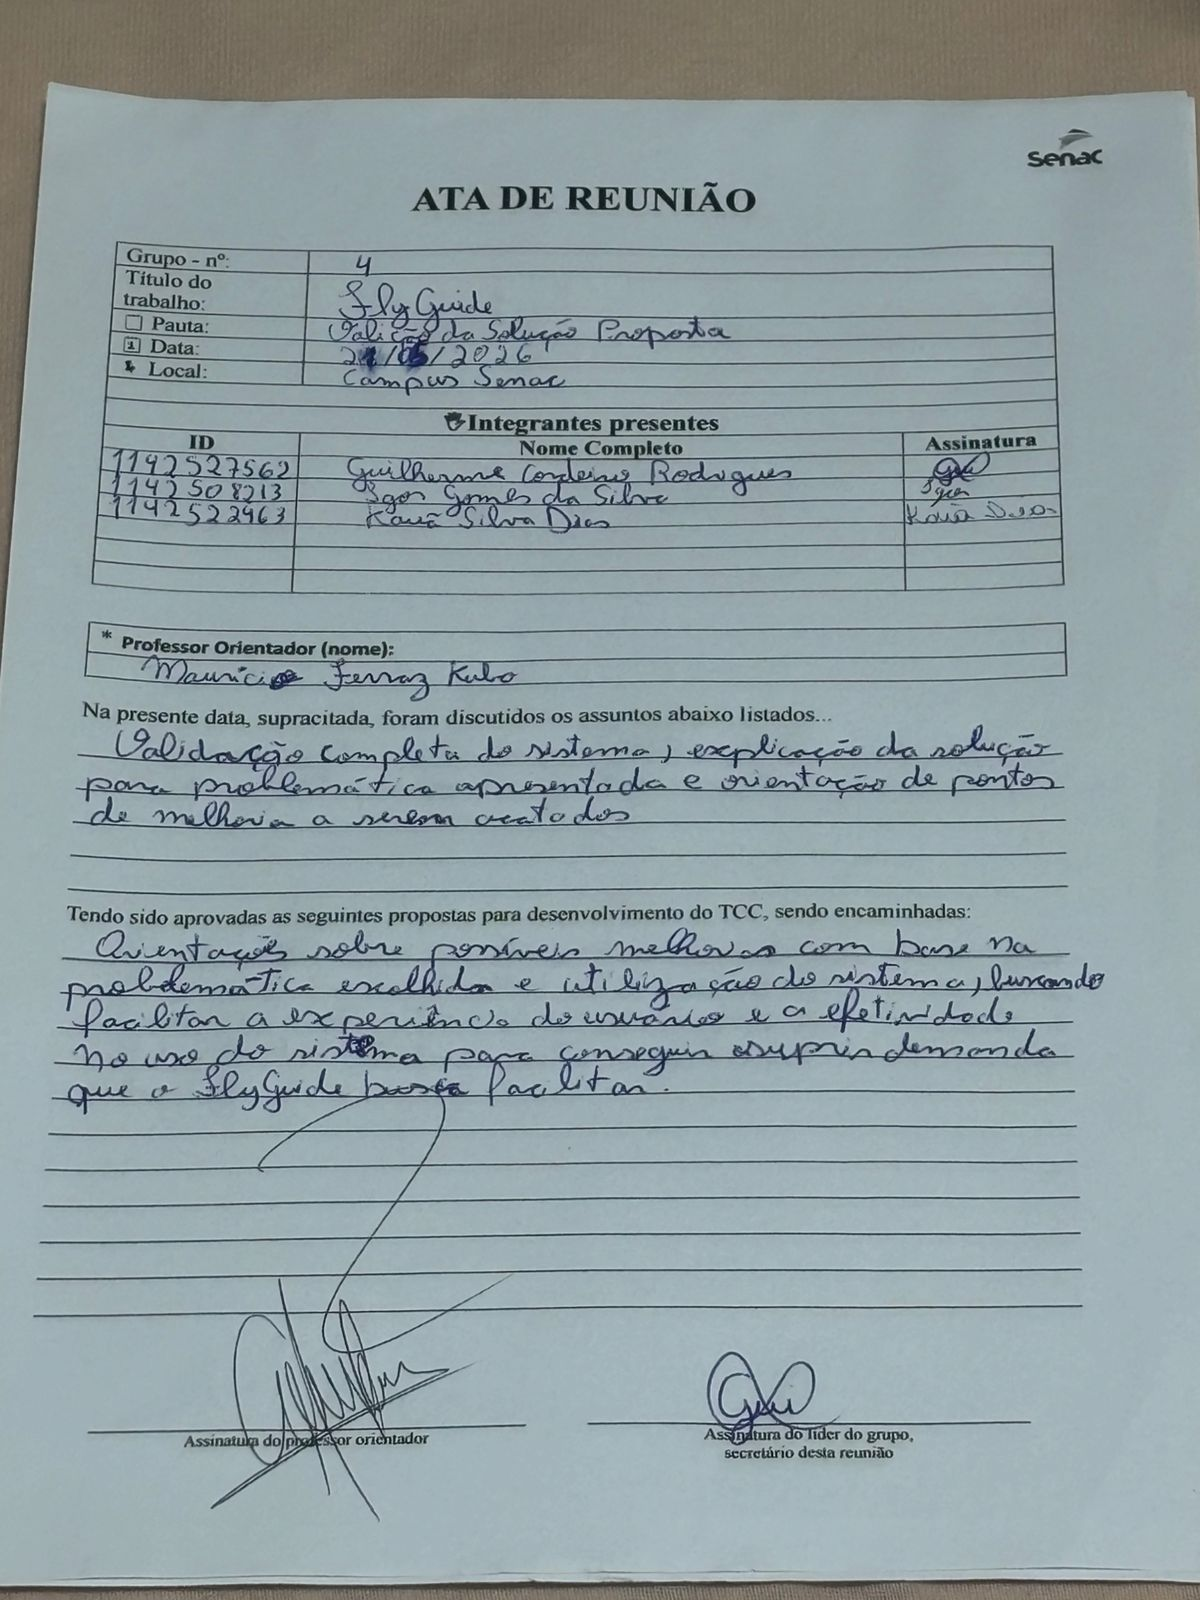 Senac
ATA DE REUNIÃO
Grupo - nº: 4
Título do trabalho: FlyGuide
Pauta: Valição da Solução Proposta
Data: 21/05/2026
Local: Campus Senac
Integrantes presentes
ID Nome Completo Assinatura
1142527562 Guilherme Cordeiro Rodrigues Gui
1142508213 Igor Gomes da Silva Igor
1142522463 Kauã Silva Dias Kauã Dias
* Professor Orientador (nome):
Mauricio Ferraz Kubo
Na presente data, supracitada, foram discutidos os assuntos abaixo listados...
Validação completa do sistema, explicação da solução
para problemática apresentada e orientação de pontos
de melhoria a serem acatados
Tendo sido aprovadas as seguintes propostas para desenvolvimento do TCC, sendo encaminhadas:
Orientações sobre possíveis melhoras com base na
problemática escolhida e utilização do sistema, buscando
facilitar a experiência do usuário e a efetividade
no uso do sistema para conseguir suprir demanda
que o FlyGuide busca facilitar.
Gui
Assinatura do professor orientador
Assinatura do líder do grupo,
secretário desta reunião